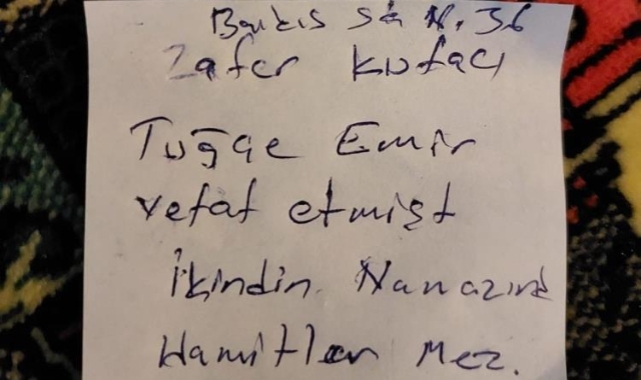 Barkıs sk N. 36
Zafer kutacı
Tuğçe Emir
vefat etmişt
İkindin Namazınd
Hamitler Mez.